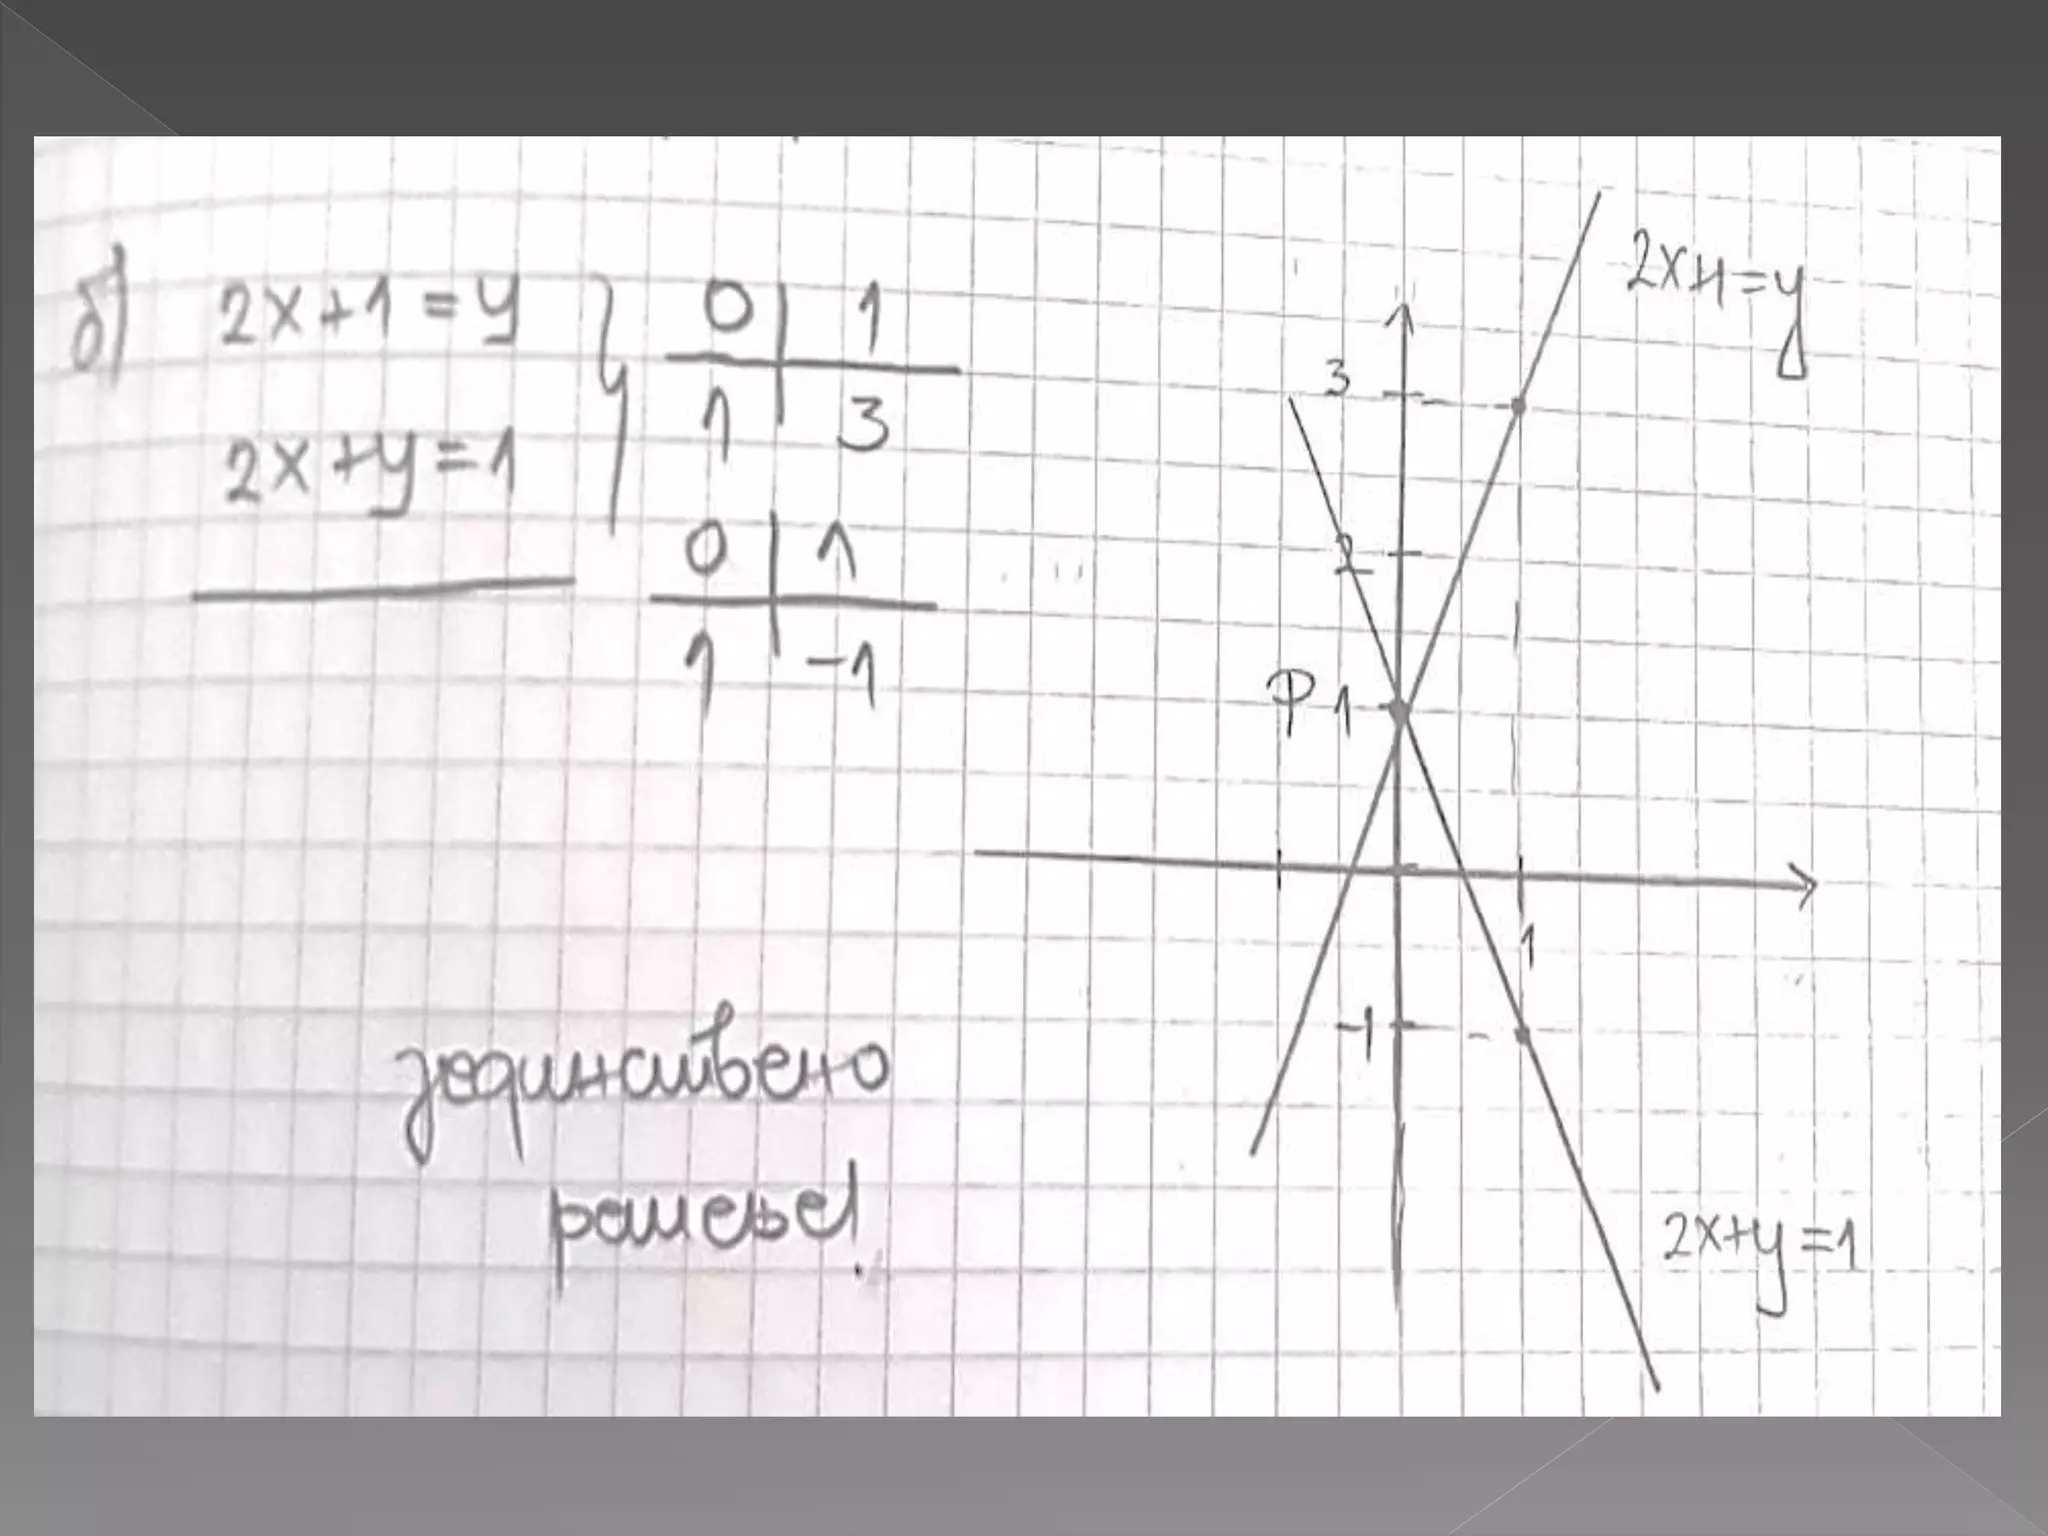 б) 2x+1=y
0 | 1
1 | 3
2x+y=1
0 | 1
1 | -1
јединствено
решење!
2x+1=y
3
2
P 1
1
-1
2x+y=1